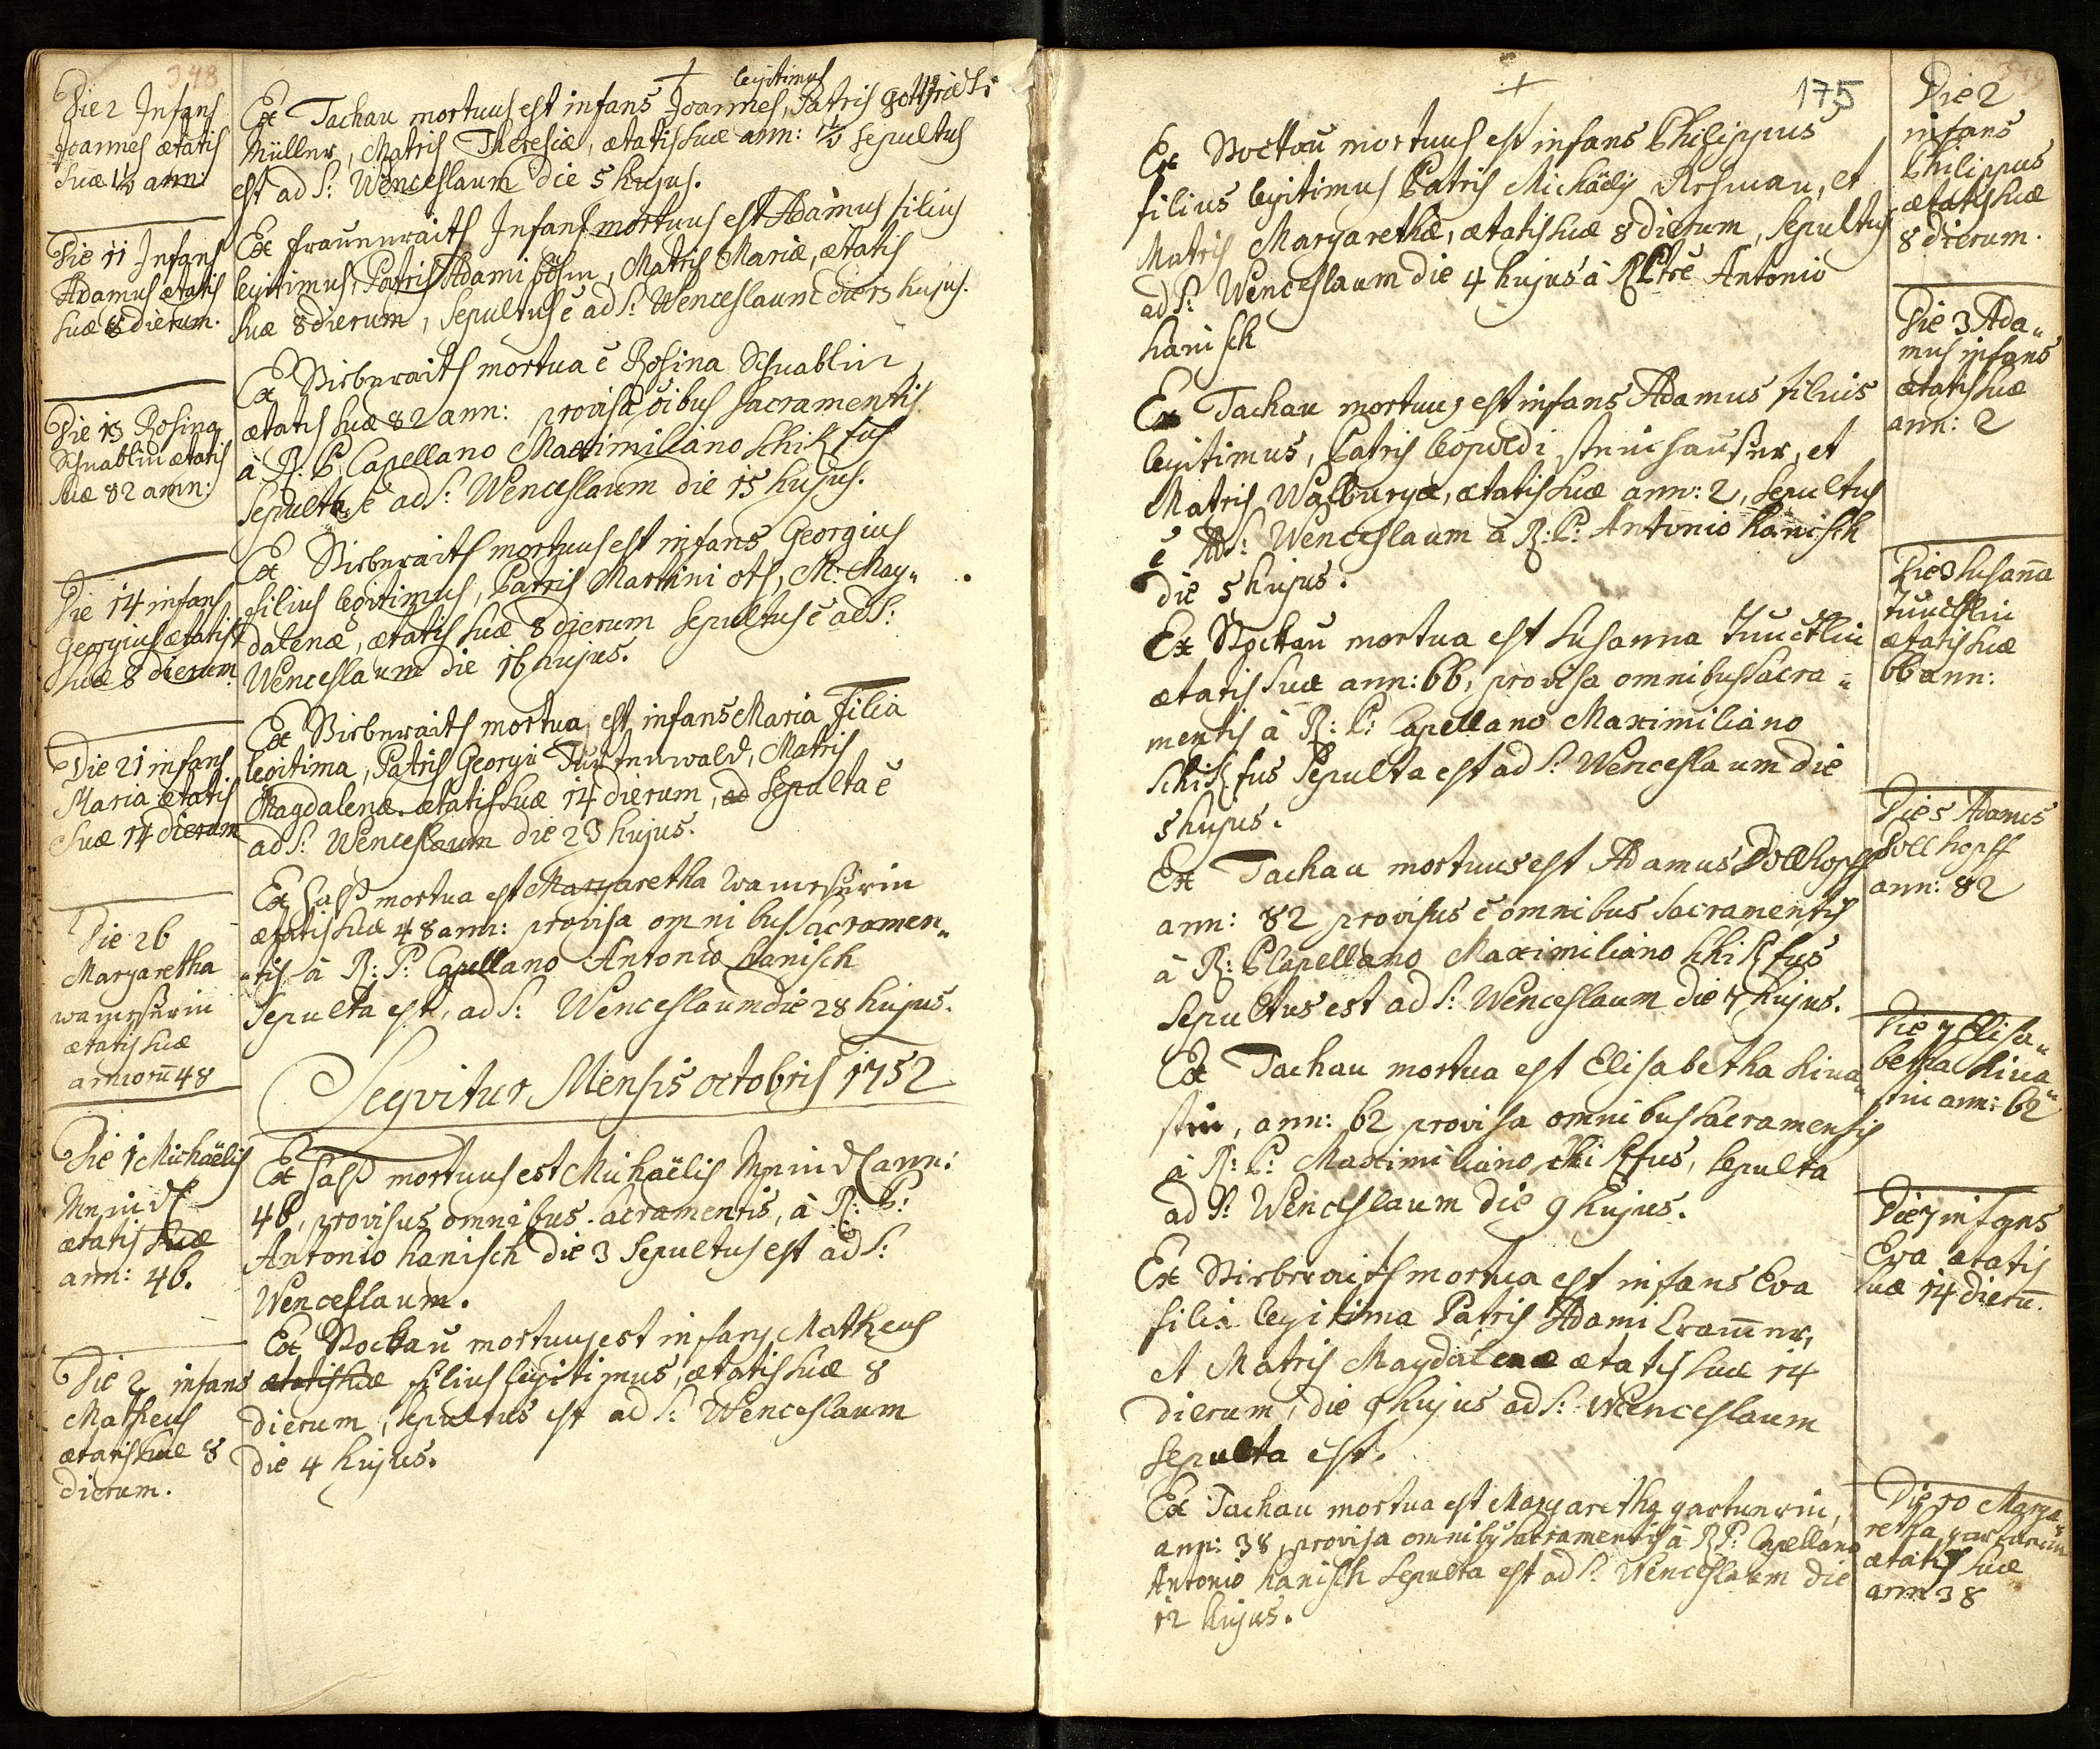 348
Die 2 Infans
Joannes ætatis
suæ 1½ ann:
Ex Tachau mortuus est infans Joannes, legitimus Patris Gottfridi
Müller, Matris Theresiæ, ætatis suæ ann: 1½ sepultus
est ad S: Wenceslaum die 5 hujus.
Die 11 Infans
Adamus ætatis
suæ 8 dierum.
Ex Frauenraith Infans mortuus est Adamus filius
legitimus, Patris Adami Böhm, Matris Mariæ, ætatis
suæ 8 dierum, sepultus ē ad S: Wenceslaum die 13 hujus.
Die 13 Rosina
Schnablin ætatis
suæ 82 ann:
Ex Birbnraith mortua ē Rosina Schnablin,
ætatis suæ 82 ann: provisa oibus sacramentis
à R: P: Capellano Maximiliano
sepulta ē ad S: Wenceslaum die 15 hujus.
Die 14 infans
Georgius ætatis
suæ 8 dierum
Ex Birbnraith mortuus est infans Georgius
filius legitimus, Patris Martini Ott, M: Mag„
dalenæ, ætatis suæ 8 dierum sepultus ē ad S:
Wenceslaum die 16 hujus.
Die 21 infans
Maria ætatis
suæ 14 dierum
Ex Birbnraith mortua est infans Maria Filia
legitima, Patris Georgii, Matris
Magdalenæ ætatis suæ 14 dierum, ad sepulta ē
ad S: Wenceslaum die 23 hujus.
Die 26
Margaretha
ætatis suæ
annorū 48
Ex Saß mortua est Margaretha
ætatis suæ 48 ann: provisa omnibus sacramen„
„tis à R: P: Capellano Antonio Hanisch
sepulta est, ad S: Wenceslaum die 28 hujus.
Seqvitur Mensis octobris 1752
Die 1 Michaëlis
ætatis suæ
ann: 46.
Ex Saß mortuus est Michaëlis ann:
46, provisus omnibus sacramentis, à R: P:
Antonio Hanisch die 3 sepultus est ad S:
Wenceslaum.
Die 2 infans
Matheus
ætatis suæ 8
dierum.
Ex Stockau mortuus est infans Matheus
ætatis suæ filius legitimus, ætatis suæ 8
dierum, sepultus est ad S: Wenceslaum
die 4 hujus.
175
Ex Stockau mortuus est infans Philippus
filius legitimus Patris Michäelis, et
Matris Margarethæ, ætatis suæ 8 dierum, sepultus
ad S: Wenceslaum die 4 hujus à R Ptre Antonio
Hanisch
Die 2
infans
Philippus
ætatis suæ
8 dierum.
Ex Tachau mortuus est infans Adamus filius
legitimus, Patris Leopoldi Steinhauser, et
Matris Walburgæ, ætatis suæ ann: 2, sepultus
ē ad S: Wenceslaum à R: P: Antonio Hanisch
die 5 hujus.
Die 3 Ada„
mus infans
ætatis suæ
ann: 2
Ex Stockau mortua est Susanna
ætatis suæ ann: 66, provisa omnibus sacra„
mentis à R: P: Capellano Maximiliano
sepulta est ad S: Wenceslaum die
5 hujus.
Die 3 Susaña
ætatis suæ
66 ann:
Ex Tachau mortuus est Adamus Dollhopff
ann: 82 provisus ē omnibus sacramentis
à R: P Capellano Maximiliano
sepultus est ad S: Wenceslaum die 7 hujus.
Die 5 Adamus
Dollhopff
ann: 82
Ex Tachau mortua est Elisabetha Hina„
stin, ann: 62 provisa omnibus sacramentis
à R: P: Maximiliano, sepulta
ad S: Wenceslaum die 9 hujus.
Die 7 Elisa„
betha Hina„
stin ann: 62
Ex Birbnraith mortua est infans Eva
filia legitima Patris Adami Cramner,
et Matris Magdalenæ ætatis suæ 14
dierum, die 9 hujus ad S: Wenceslaum
sepulta est.
Die 7 infans
Eva ætatis
suæ 14 dierū.
Ex Tachau mortua est Margaretha Gartnerin,
ann: 38, provisa omnibus sacramentis à R P: Capellano
Antonio Hanisch sepulta est ad S: Wenceslaum die
12 hujus.
Die 10 Marga„
retha Gartnerin
ætatis suæ
ann 38